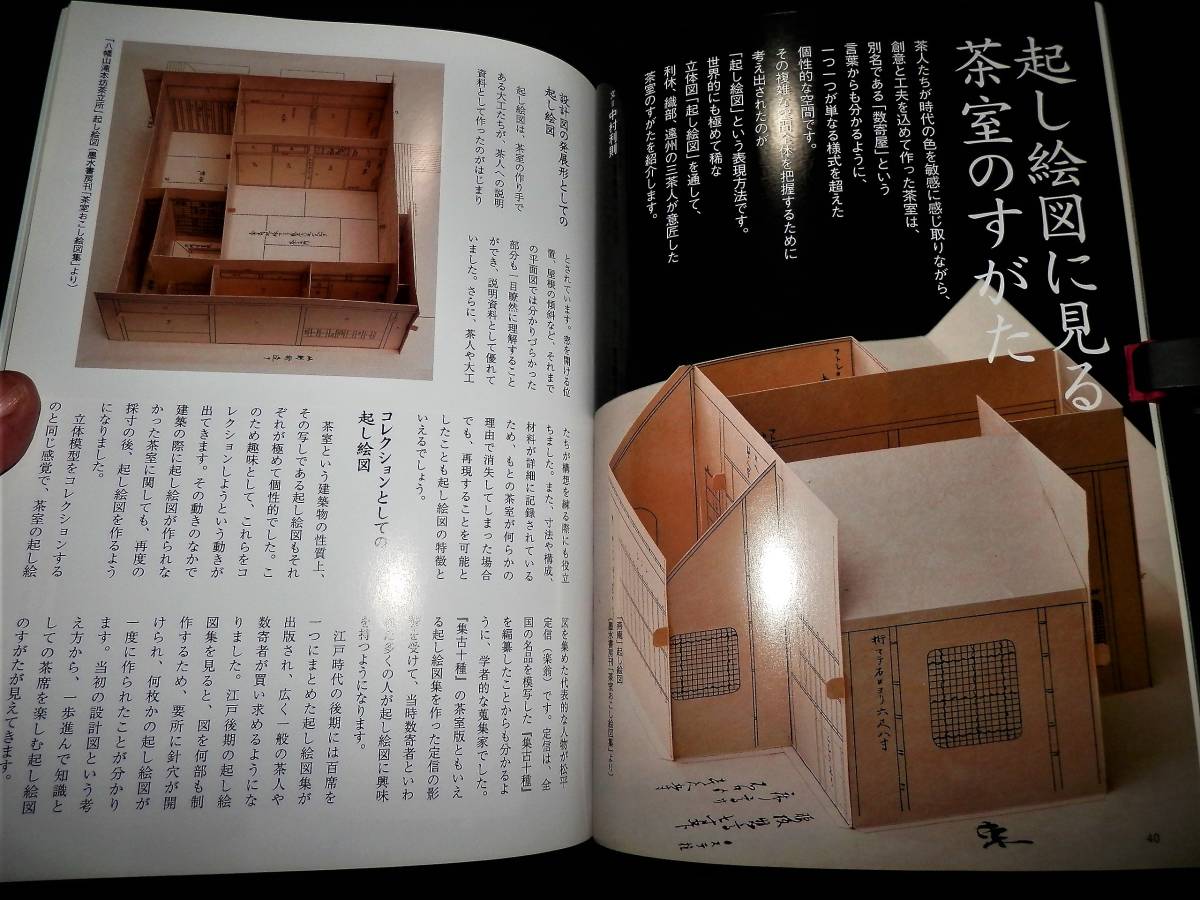 起し絵図に見る
茶室のすがた
茶人たちが時代の色を敏感に感じ取りながら、
創意と工夫を込めて作った茶室は、
別名である「数寄屋」という
言葉からも分かるように、
一つ一つが単なる様式を超えた
個性的な空間です。
その複雑な空間全体を把握するために
考え出されたのが
「起し絵図」という表現方法です。
世界的にも極めて稀な
立体図「起し絵図」を通して、
利休、織部、遠州の三茶人が意匠した
茶室のすがたを紹介します。
文=中村利則
アトレ
桁マテ石ヨリ六尺八寸
「燕庵」起し絵図
(墨水書房刊「茶室おこし絵図集」より)
40
設計図の発展形としての
起し絵図
起し絵図は、茶室の作り手で
ある大工たちが、茶人への説明
資料として作ったのがはじまり
とされています。窓を開ける位
置、屋根の傾斜など、それまで
の平面図では分かりづらかった
部分も一目瞭然に理解すること
ができ、説明資料として優れて
いました。さらに、茶人や大工
たちが構想を練る際にも役立
ちました。また、寸法や構成、
材料が詳細に記録されている
ため、もとの茶室が何らかの
理由で消失してしまった場合
でも、再現することを可能と
したことも起し絵図の特徴と
いえるでしょう。
コレクションとしての
起し絵図
茶室という建築物の性質上、
その写しである起し絵図もそれ
ぞれが極めて個性的でした。こ
のため趣味として、これらをコ
レクションしようという動きが
出てきます。その動きのなかで
建築の際に起し絵図が作られな
かった茶室に関しても、再度の
採寸の後、起し絵図を作るよう
になりました。
立体模型をコレクションする
のと同じ感覚で、茶室の起し絵
図を集めた代表的な人物が松平
定信(楽翁)です。定信は、全
国の名品を模写した『集古十種』
を編纂したことからも分かるよ
うに、学者的な蒐集家でした。
『集古十種』の茶室版ともいえ
る起し絵図集を作った定信の影
響を受けて、当時数寄者といわ
れた多くの人が起し絵図に興味
を持つようになります。
江戸時代の後期には百席を
一つにまとめた起し絵図集が
出版され、広く一般の茶人や
数寄者が買い求めるようにな
りました。江戸後期の起し絵
図集を見ると、図を何部も制
作するため、要所に針穴が開
けられ、何枚かの起し絵図が
一度に作られたことが分かり
ます。当初の設計図という考
え方から、一歩進んで知識と
しての茶席を楽しむ起し絵図
のすがたが見えてきます。
「八幡山滝本坊茶立所」起し絵図(墨水書房刊「茶室おこし絵図集」より)